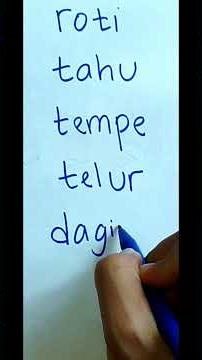 roti
tahu
tempe
telur
dagi